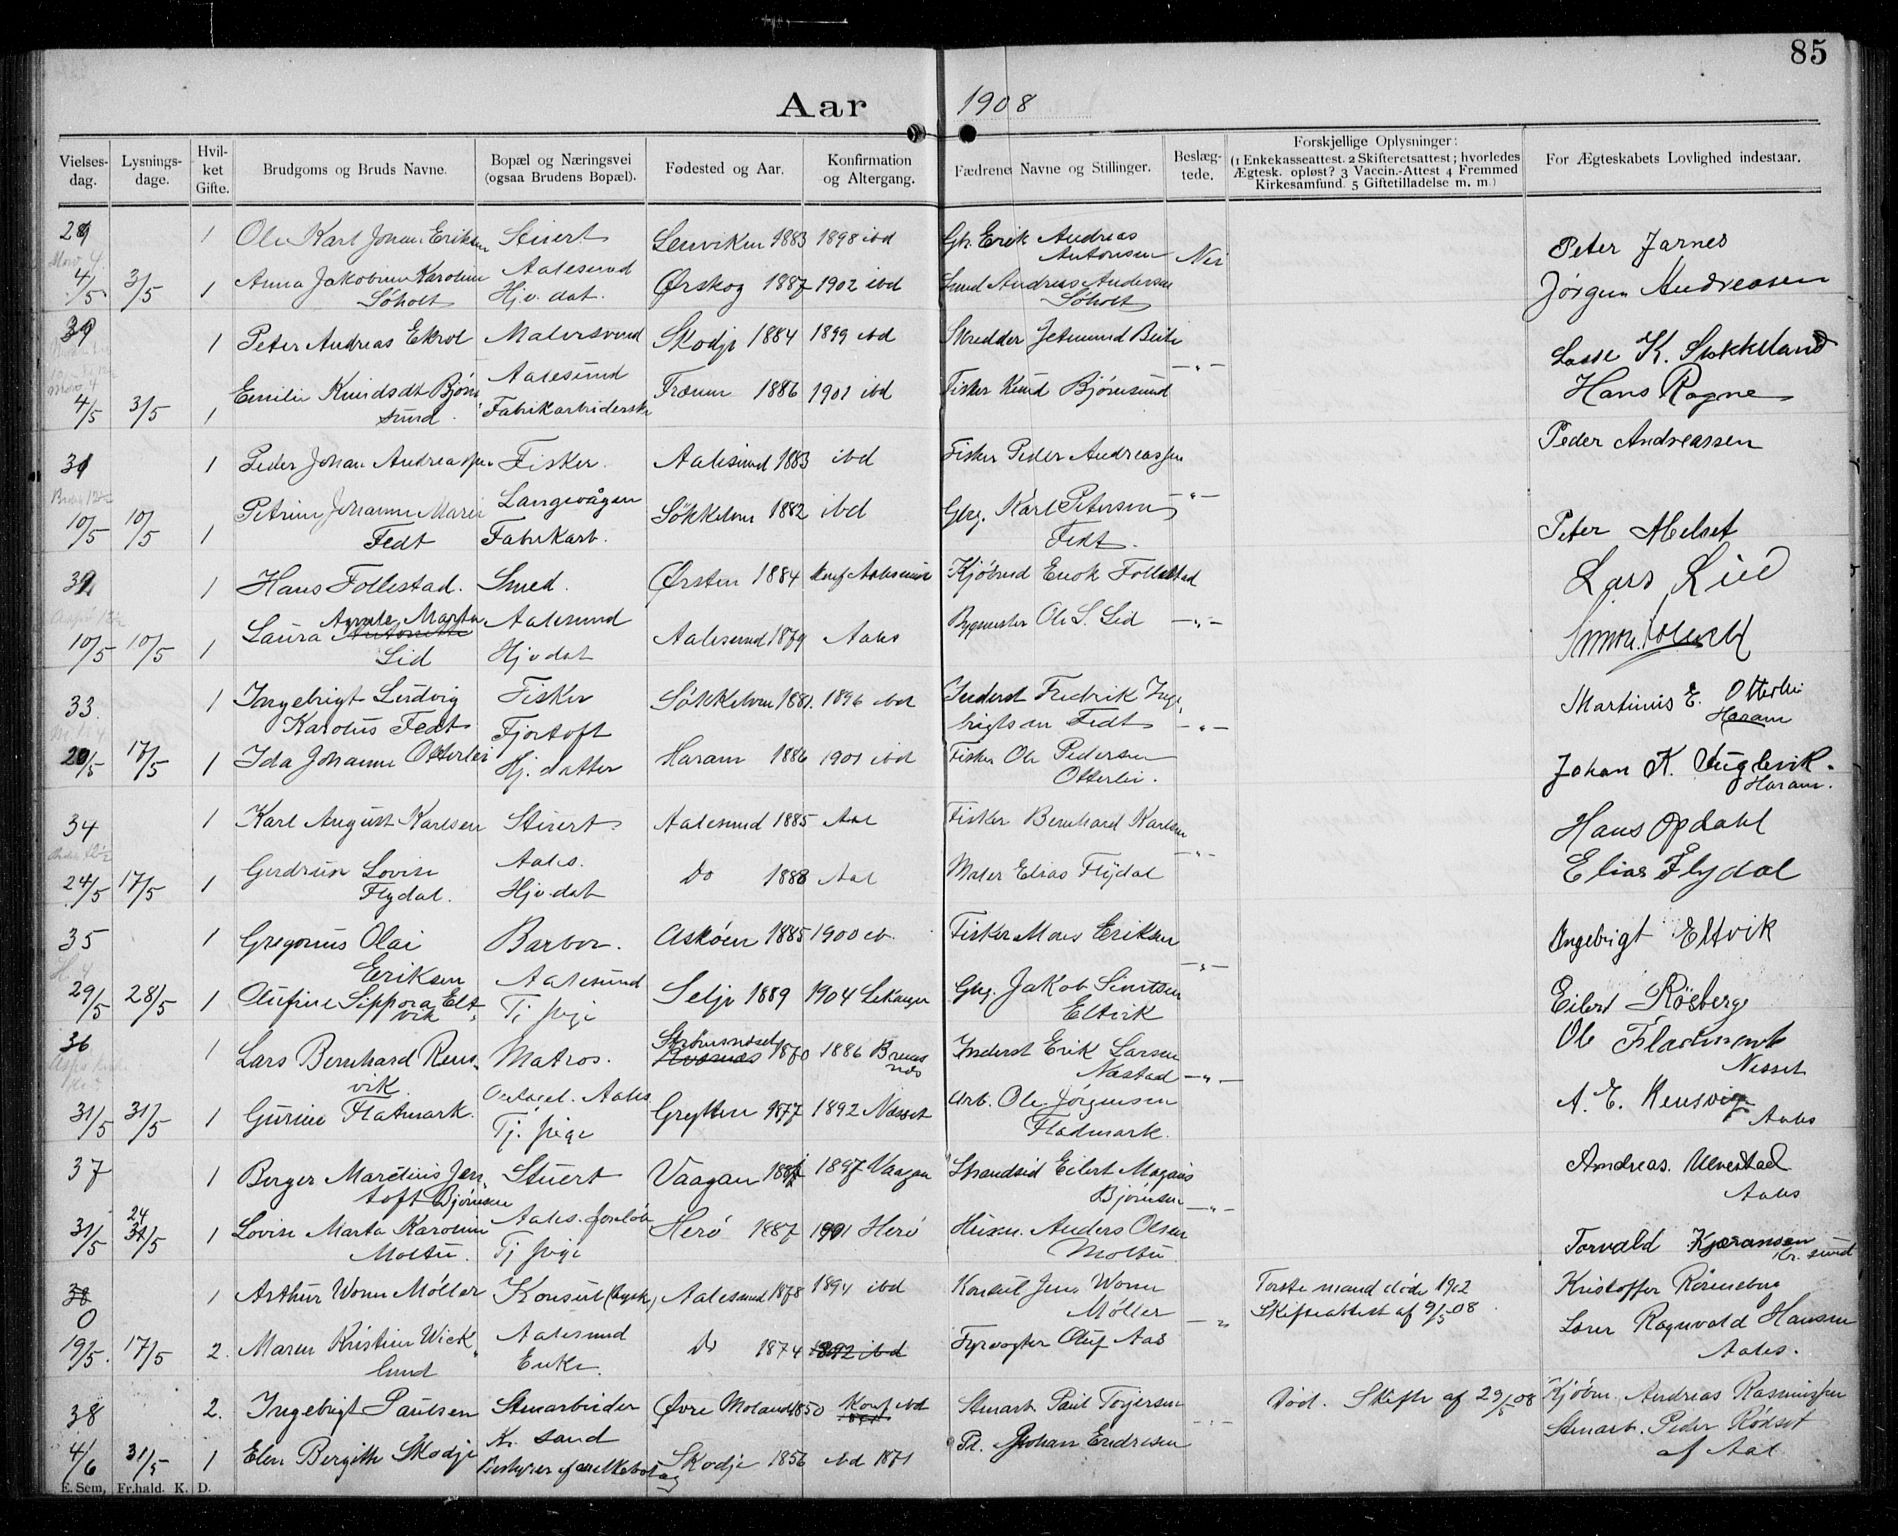 85
Aar 1908
Vielses-dag. Lysnings-dage. Hvil-ket Gifte. Brudgoms og Bruds Navne. Bopæl og Næringsvei (ogsaa Brudens Bopæl). Fødested og Aar. Konfirmation og Altergang. Fædrenes Navne og Stillinger. Beslæg-tede. Forskjellige Oplysninger: (1 Enkekasseattest. 2 Skifteretsattest; hvorledes Ægtesk. opløst? 3 Vaccin.-Attest 4 Fremmed Kirkesamfund. 5 Giftetilladelse m. m.) For Ægteskabets Lovlighed indestaar.
29 1 Ole Karl Johan Eriksen Stuert Lenviken 1883 1898 ibd Gbr. Erik Andreas Antonsen Nei Peter Jarnes
4/5 3/5 1 Anna Jakobine Karoline Søholt Aalesund Hjv. dat. Ørskog 1887 1902 ibd Smed Andreas Andersen Søholt Jørgen Andreasen
30 1 Peter Andreas Ekrol Malersvend Skodje 1884 1899 ibd Skredder Jetmund Lasse K. Stokkeland
4/5 3/5 1 Emilie Knudsdt Bjørnsund Aalesund Fabrikarbiderske Frænen 1886 1901 ibd Fisker Knud Bjørnsund Hans Rogne
31 1 Peder Johan Andreassen Fisker. Aalesund 1883 ibd Fisker Peder Andreassen Peder Andreassen
10/5 10/5 1 Petrine Johanne Marie Fedt Langevågen Fabrikarb. Søkkelven 1882 ibd Gbrg. Karl Petersen Fedt. Peter Melset
32 1 Hans Follestad. Smed. Ørsten 1884 Konf Aalesund Kjøbmd Enok Follestad Lars Lied
10/5 10/5 1 Laura Marta Lid Aalesund Hjv dat Aalesund 1879 Aales Bygmester Ole S. Lid
33. 1 Ingebrigt Ludvig Karolus Fedt Fisker Fjørtoft Søkkelven 1881. 1896 ibd Inderst Fredrik Ingebrigtsen Fedt Martinus E. Otterlei Haram
20/5 17/5 1 Ida Johanne Otterlei Hj. datter Haram 1886 1901 ibd Fisker Ole Pedersen Otterlei. Johan K. Fuglevik. Haram.
34 1 Karl August Karlsen Stuert Aalesund 1885 Aal Fisker Bernhard Karlsen Hans Opdahl
24/5 17/5 1 Gudrun Lovise Flydal. Aales. Hjv. dat Do 1888 Aal Maler Elias Flydal Elias Flydal
35 1 Gregorius Olai Eriksen Barber. Askøen 1885 1900 ib. Fisker Mons Eriksen Ingebrigt Eltvik
29/5 28/5 1 Olufine Sippora Eltvik Aalesund Tj. pige Selje 1889 1904 Lekanger Gbrg. Jakob Simtsen Eltvik Eilert Røsberg
36 1 Lars Bernhard Rensvik Matros. Strømsneset 1870 1886 Bremsnes Inderst Erik Larsen Næstad Ole Flatmark Nesset
31/5 31/5 1 Gurine Flatmark. Aales Tj. pige Grytten 1877 1892 Nesset Arb. Ole Jørgensen Fladmark. A. E. Rensvig Aales
37 1 Berger Martinus Jentoft Bjørnsen Stuert Vaagan 1882 1897 Vaagan Strandsid Eilert Magnus Bjørnsen Andreas. Ulvestad Aales
31/5 24/5 1 Lovise Marta Karoline Moltu. Aales. Tj pige Herø 1887 1901 Herø Husm. Anders Olsen Moltu Torvald Kjøransen Kr. sund
38 0 1 Arthur Worm Møller Konsul (tysk) Aalesund 1878 1894 ibd Konsul Jens Worm Møller Første mand døde 1902 Skifteattest af 9/5 08 Kristoffer Rønneberg
19/5. 17/5 2. Maren Kristine Wicklund Aalesund Enke. Do 1874 1892 ibd Fyrvogter Oluf Aas Lorer Ragnvald Hansen Aales.
38 2. Ingebrigt Paulsen Stenarbeider Øvre Moland 1850 Konf ibd Stenarb Paul Torjersen Død. Skifte af 29/5 08 Kjøbm. Andreas Rasmussen
4/6 31/5 1 Elen Bergithe Skodje Kr. sand Skodje 1856 ibd 1871 Johan Endresen Stenarb. Peder Rødset af Aal
E. Sem, Fr.hald. K. D.